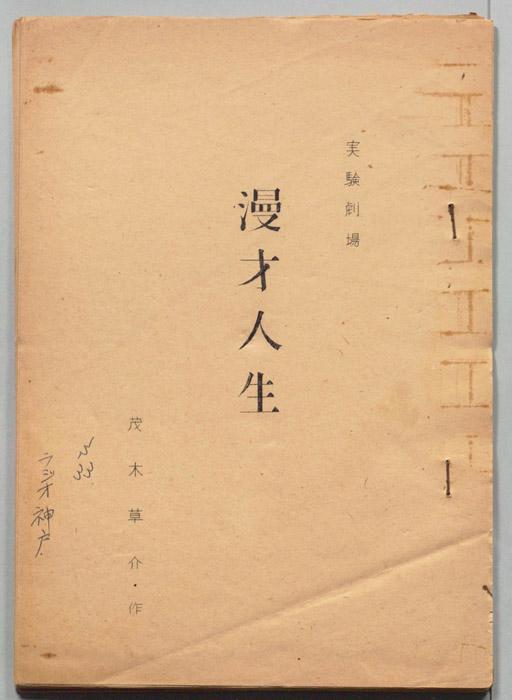 実験劇場
漫才人生
茂木草介・作
S33.
ラジオ神戸.